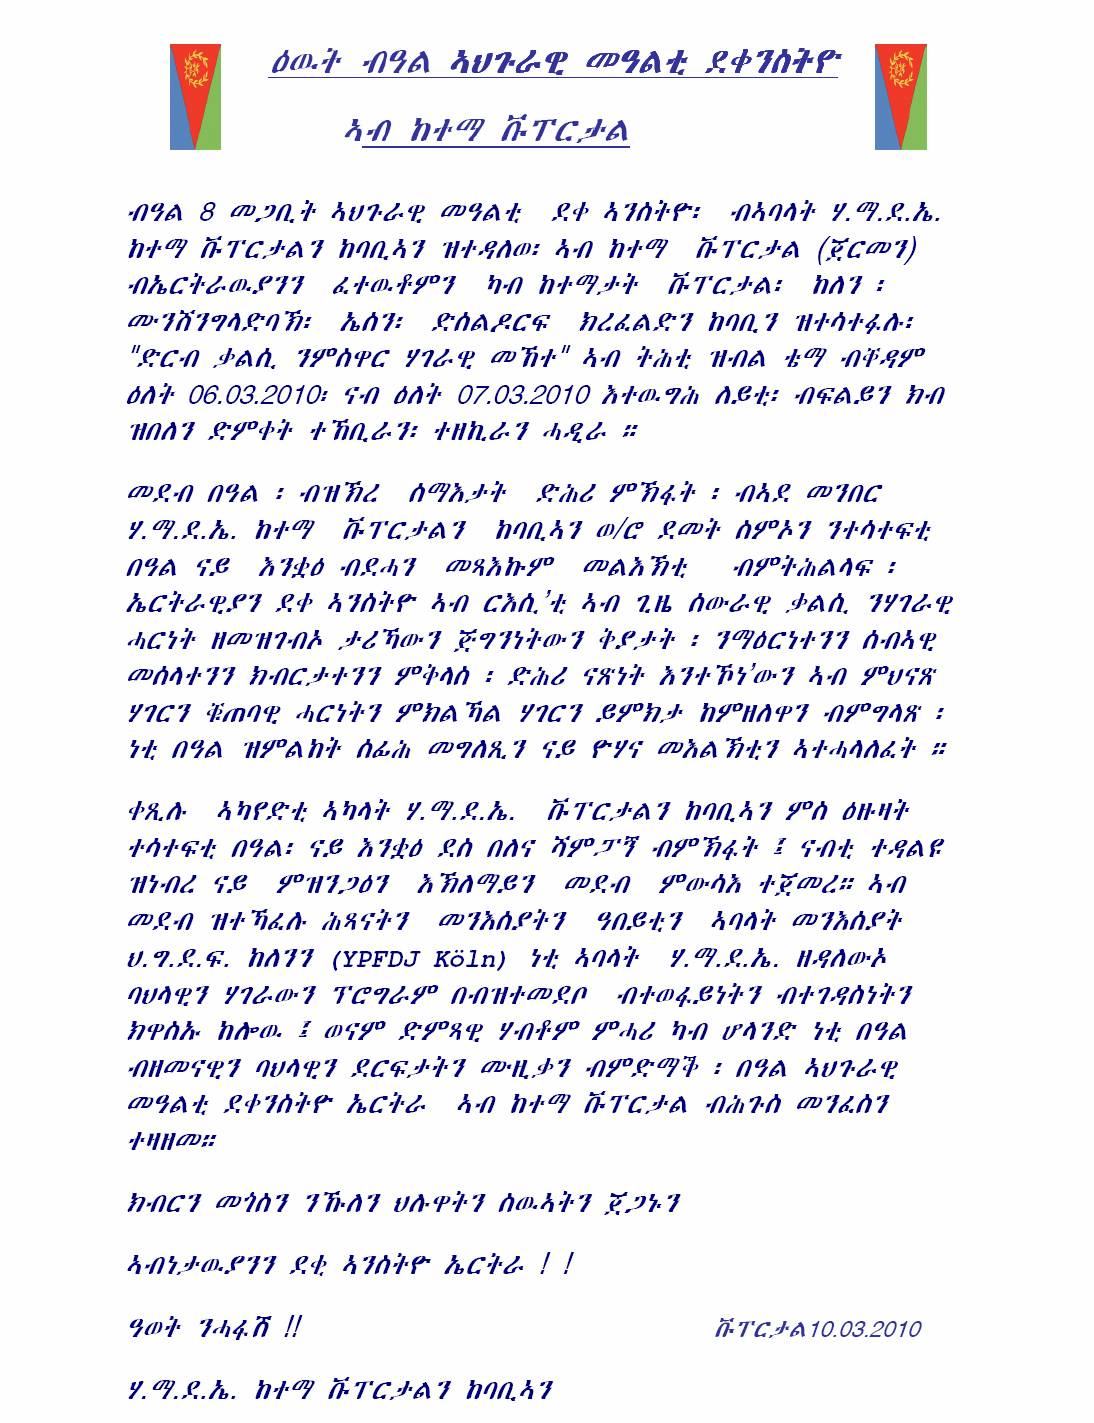 ዕዉት ብዓል ኣህጉራዊ መዓልቲ ደቀንስትዮ
ኣብ ከተማ ቩፐርታል
ብዓል 8 መጋቢት ኣህጉራዊ መዓልቲ ደቀ ኣንስትዮ፡ ብኣባላት ሃ.ማ.ደ.ኤ.
ከተማ ቩፐርታልን ከባቢኣን ዝተዳለወ፡ ኣብ ከተማ ቩፐርታል (ጀርመን)
ብኤርትራዉያንን ፈተዉቶምን ካብ ከተማታት ቩፐርታል፡ ከለን ፡
ሙንሽንግላድባኽ፡ ኤሰን፡ ድሰልዶርፍ ክረፈልድን ከባቢን ዝተሳተፋሉ፡
"ድርብ ቃልሲ ንምስዋር ሃገራዊ መኸተ" ኣብ ትሕቲ ዝብል ቴማ ብቐዳም
ዕለት 06.03.2010፡ ናብ ዕለት 07.03.2010 እተዉግሕ ለይቲ፡ ብፍልይን ክብ
ዝበለን ድምቀት ተኸቢራን፡ ተዘኪራን ሓዲራ ።
መደብ በዓል ፡ ብዝኽረ ሰማእታት ድሕሪ ምኽፋት ፡ ብኣደ መንበር
ሃ.ማ.ደ.ኤ. ከተማ ቩፐርታልን ከባቢኣን ወ/ሮ ደመት ስምኦን ንተሳተፍቲ
በዓል ናይ እንቋዕ ብደሓን መጻእኩም መልእኽቲ ብምትሕልላፍ ፡
ኤርትራዊያን ደቀ ኣንስትዮ ኣብ ርእሲ'ቲ ኣብ ጊዜ ሰውራዊ ቃልሲ ንሃገራዊ
ሓርነት ዘመዝገብኦ ታሪኻውን ጅግንነትውን ቅያታት ፡ ንማዕርነተንን ሰብኣዊ
መሰላተንን ክብርታተንን ምቅላስ ፡ ድሕሪ ናጽነት እንተኾነ'ውን ኣብ ምህናጽ
ሃገርን ቁጠባዊ ሓርነትን ምክልኻል ሃገርን ይምክታ ከምዘለዋን ብምግላጽ ፡
ነቲ በዓል ዝምልከት ሰፊሕ መግለጺን ናይ ዮሃና መእልኽቲን ኣተሓላለፈት ።
ቀጺሉ ኣካየድቲ ኣካላት ሃ.ማ.ደ.ኤ. ቩፐርታልን ከባቢኣን ምስ ዕዙዛት
ተሳተፍቲ በዓል፡ ናይ እንቋዕ ደስ በለና ሻምፓኝ ብምኽፋት ፤ ናብቲ ተዳልዩ
ዝነብረ ናይ ምዝንጋዕን ኣኽለማይን መደብ ምውሳእ ተጀመረ። ኣብ
መደብ ዝተኻፈሉ ሕጻናትን መንእሰያትን ዓበይቲን ኣባላት መንእሰያት
ህ.ግ.ደ.ፍ. ከለንን (YPFDJ Köln) ነቲ ኣባላት ሃ.ማ.ደ.ኤ. ዘዳለውኦ
ባህላዊን ሃገራውን ፕሮግራም በብዝተመደቦ ብተወፋይነትን ብተገዳስነትን
ክዋስኡ ከሎዉ ፤ ወናም ድምጻዊ ሃብቶም ምሓሪ ካብ ሆላንድ ነቲ በዓል
ብዘመናዊን ባህላዊን ደርፍታትን ሙዚቃን ብምድማቕ ፡ በዓል ኣህጉራዊ
መዓልቲ ደቀንስትዮ ኤርትራ ኣብ ከተማ ቩፐርታል ብሕጉስ መንፈስን
ተዛዘመ።
ክብርን መጎስን ንኹለን ህሉዋትን ስዉኣትን ጀጋኑን
ኣብነታዉያንን ደቂ ኣንስትዮ ኤርትራ ! !
ዓወት ንሓፋሽ !! ቩፐርታል10.03.2010
ሃ.ማ.ደ.ኤ. ከተማ ቩፐርታልን ከባቢኣን